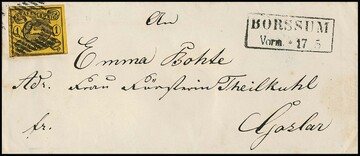 An
BORSSUM
Vorm. 17 5
Emma Bohte
Adr. Frau Försterin Theilkuhl
fr. Goslar